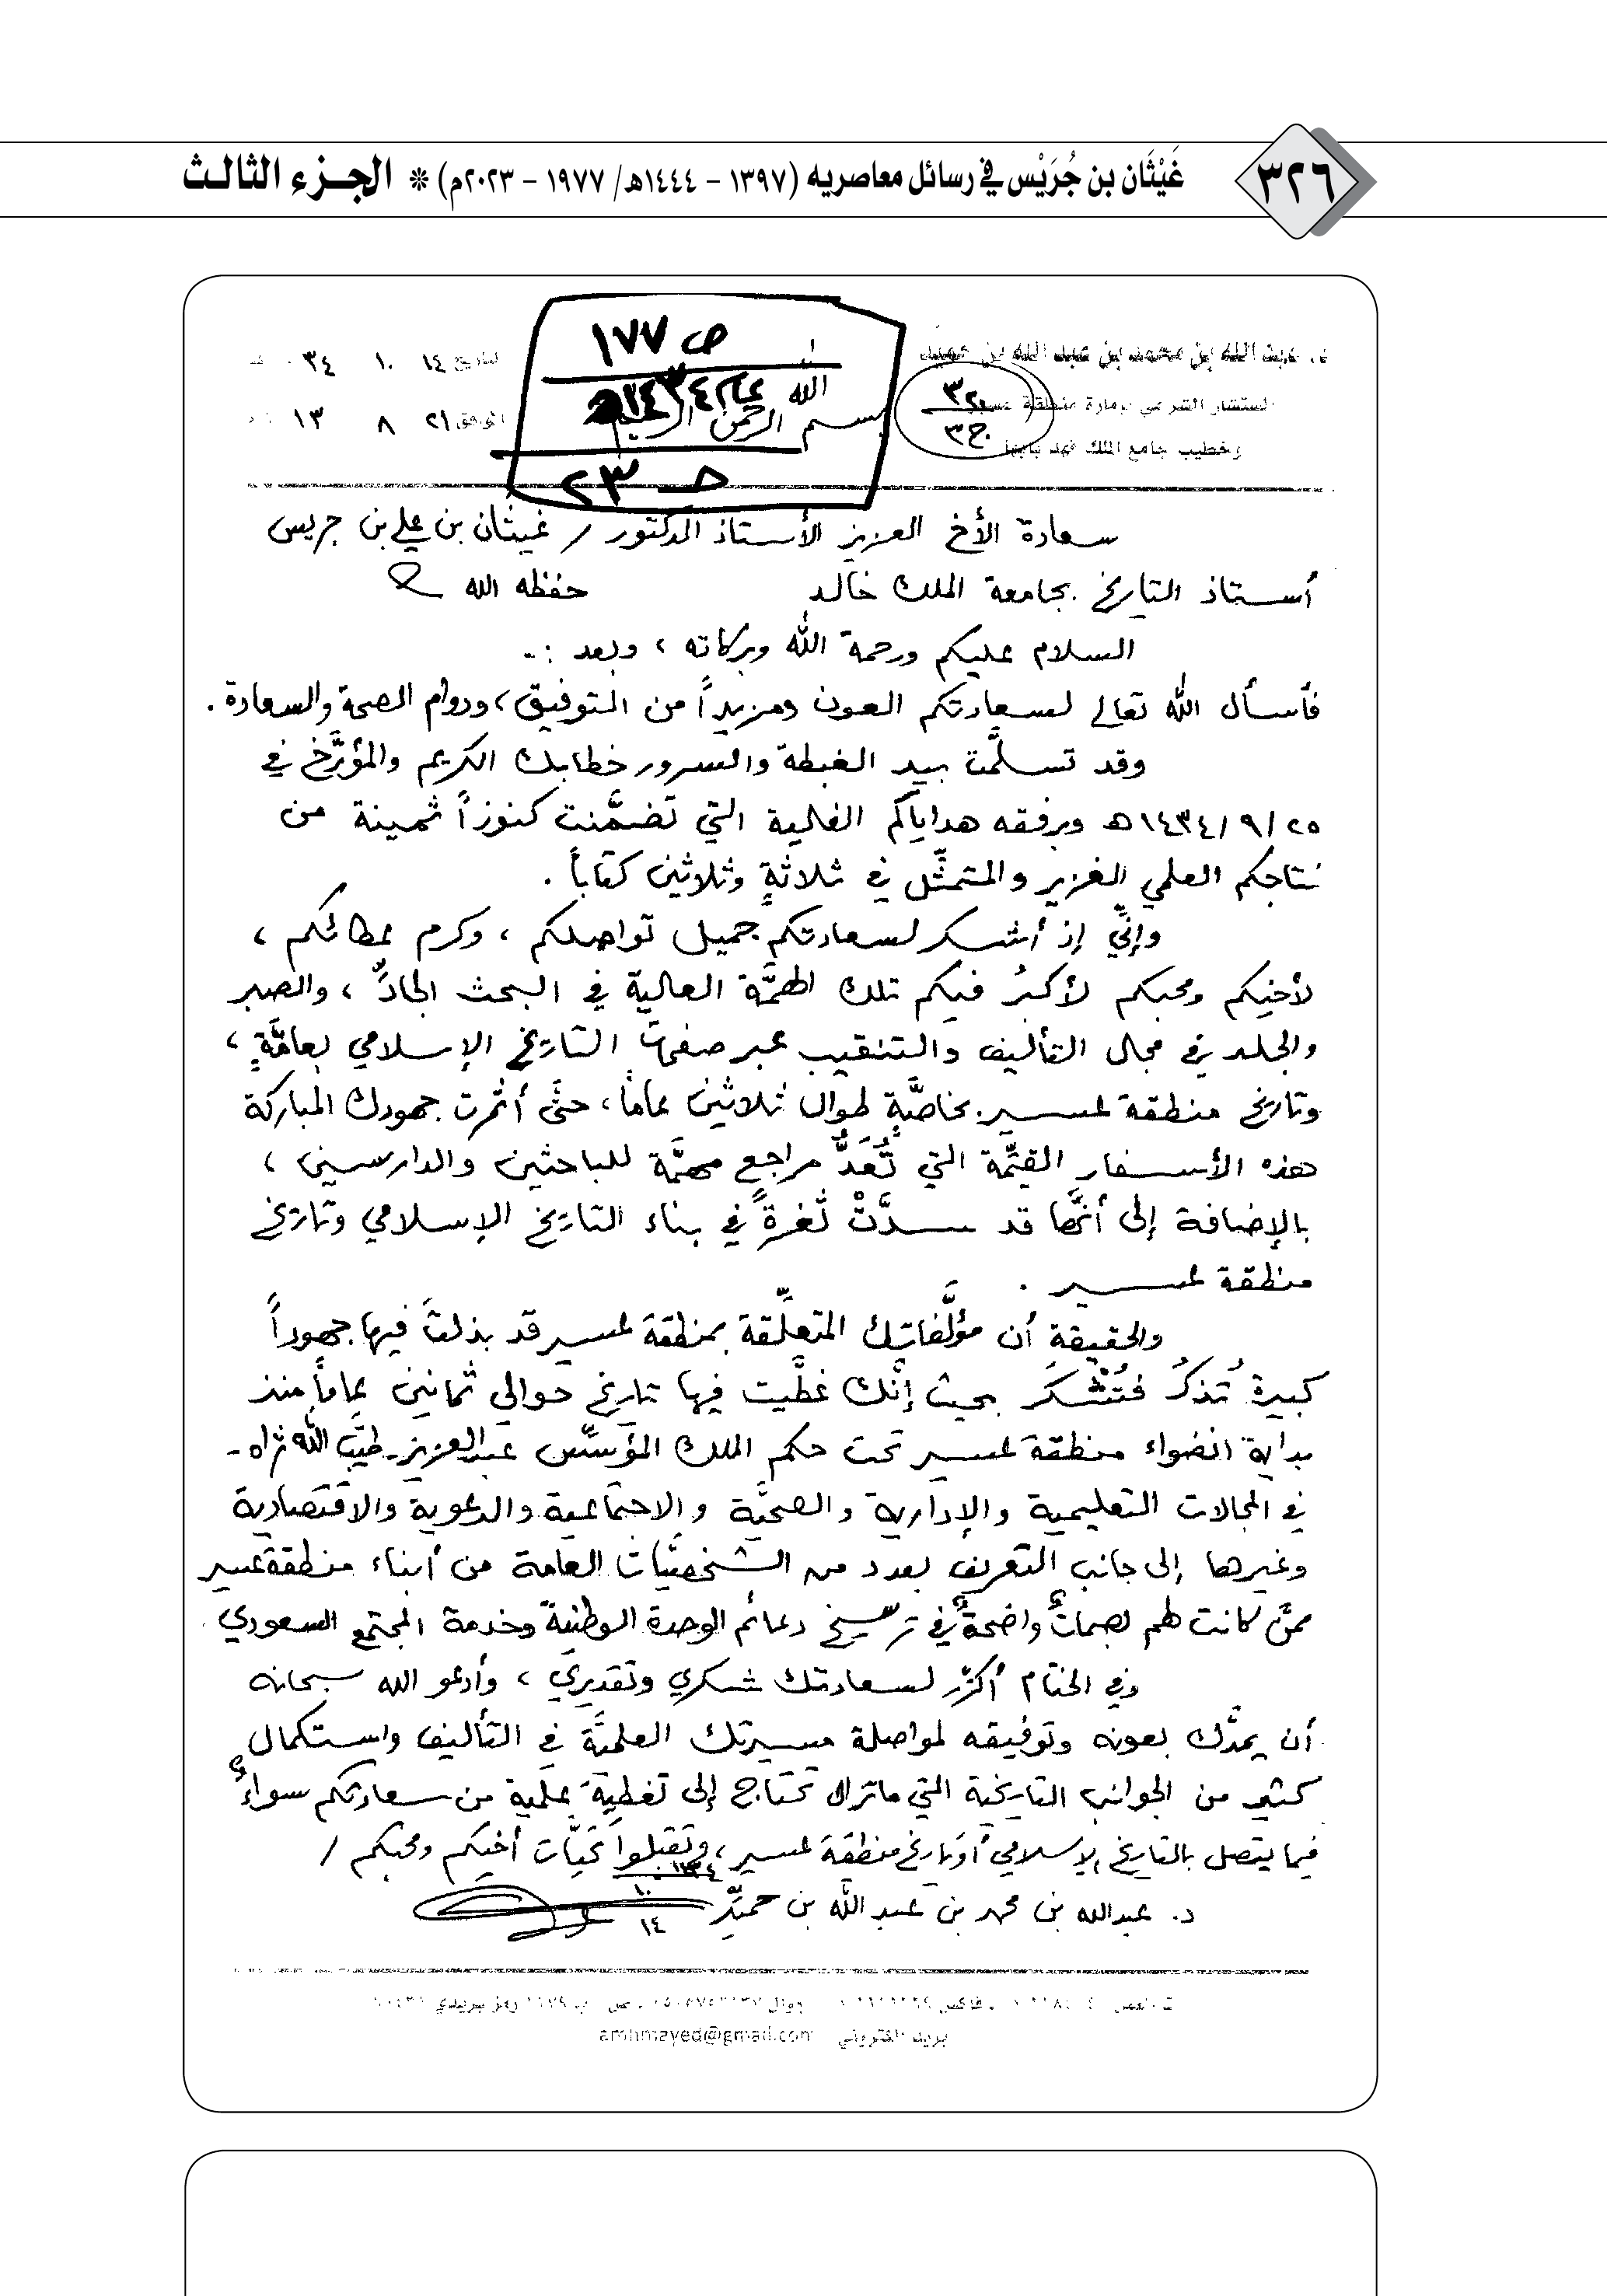 ٣٢٦
غَيْثَان بن جُرَيْس في رسائل معاصريه (١٣٩٧ – ١٤٤٤هـ/ ١٩٧٧ – ٢٠٢٣م) * الجـزء الثالـث
د. عبد الله بن محمد بن عبد الله بن حميد
المستشار الشرعي بإمارة منطقة عسير
وخطيب جامع الملك فهد بأبها
ج٣
ص ١٧٧
عام ١٤٣٤هـ
بسم الله الرحمن الرحيم
حـ ٢٣
التاريخ ١٤ ١٠ ٣٤
الموافق ٢١ ٨ ١٣
سعادة الأخ العزيز الأستاذ الدكتور / غيثان بن علي بن جريس
أستاذ التاريخ بجامعة الملك خالد حفظه الله
السلام عليكم ورحمة الله وبركاته ، وبعد :-
فأسأل الله تعالى لسعادتكم العون ومزيداً من التوفيق، ودوام الصحة والسعادة .
وقد تسلَّمت بيد الغبطة والسرور خطابك الكريم والمؤرَّخ في
٢٥/ ٩/ ١٤٣٤هـ وبرفقه هداياكم الغالية التي تضمَّنت كنوزاً ثمينة من
نتاجكم العلمي الغزير والمتمثِّل في ثلاثةٍ وثلاثين كتاباً .
وإنِّي إذ أشكر لسعادتكم جميل تواصلكم ، وكرم عطائكم ،
لأخيكم ومحبكم لأكبرُ فيكم تلك الهمَّة العالية في البحث الجادِّ ، والصبر
والجلد في مجال التأليف والتنقيب عبر صفحات التاريخ الإسلامي بعامَّةٍ ،
وتاريخ منطقة عسير بخاصَّةٍ طوال ثلاثين عاماً، حتَّى أثمرت جهودك المباركة
هذه الأسفار القيِّمة التي تُعَدُّ مراجع مهمَّة للباحثين والدارسين ،
بالإضافة إلى أنَّها قد سدَّتْ ثُغرةً في بناء التاريخ الإسلامي وتاريخ
منطقة عسير .
والحقيقة أن مؤلَّفاتك المتعلِّقة بمنطقة عسير قد بذلتَ فيها جهوداً
كبيرة تُذكرُ فتُشْكَر بحيث إنَّك غطَّيت فيها تاريخ حوالي ثمانين عاماً منذ
بداية انضواء منطقة عسير تحت حكم الملك المؤسِّس عبدالعزيز - طيَّب الله ثراه -
في المجالات التعليمية والإدارية والصحيَّة والاجتماعية والدعوية والاقتصادية
وغيرها إلى جانب التعريف بعدد من الشخصيَّات العامة من أبناء منطقة عسير
ممَّن كانت لهم بصماتٌ واضحةٌ في ترسيخ دعائم الوحدة الوطنية وخدمة المجتمع السعودي
وفي الختام أكرِّر لسعادتك شكري وتقديري ، وأدعو الله سبحانه
أن يمدَّك بعونه وتوفيقه لمواصلة مسيرتك العلميَّة في التأليف واستكمال
كثير من الجوانب التاريخية التي ماتزال تحتاج إلى تغطية علمية من سعادتكم سواءٌ
فيما يتصل بالتاريخ الإسلامي أو تاريخ منطقة عسير ، وتقبلوا تحيَّات أخيكم ومحبكم /
د. عبدالله بن محمد بن عبد الله بن حميِّد
١٤
بريد الكتروني amhmayed@gmail.com